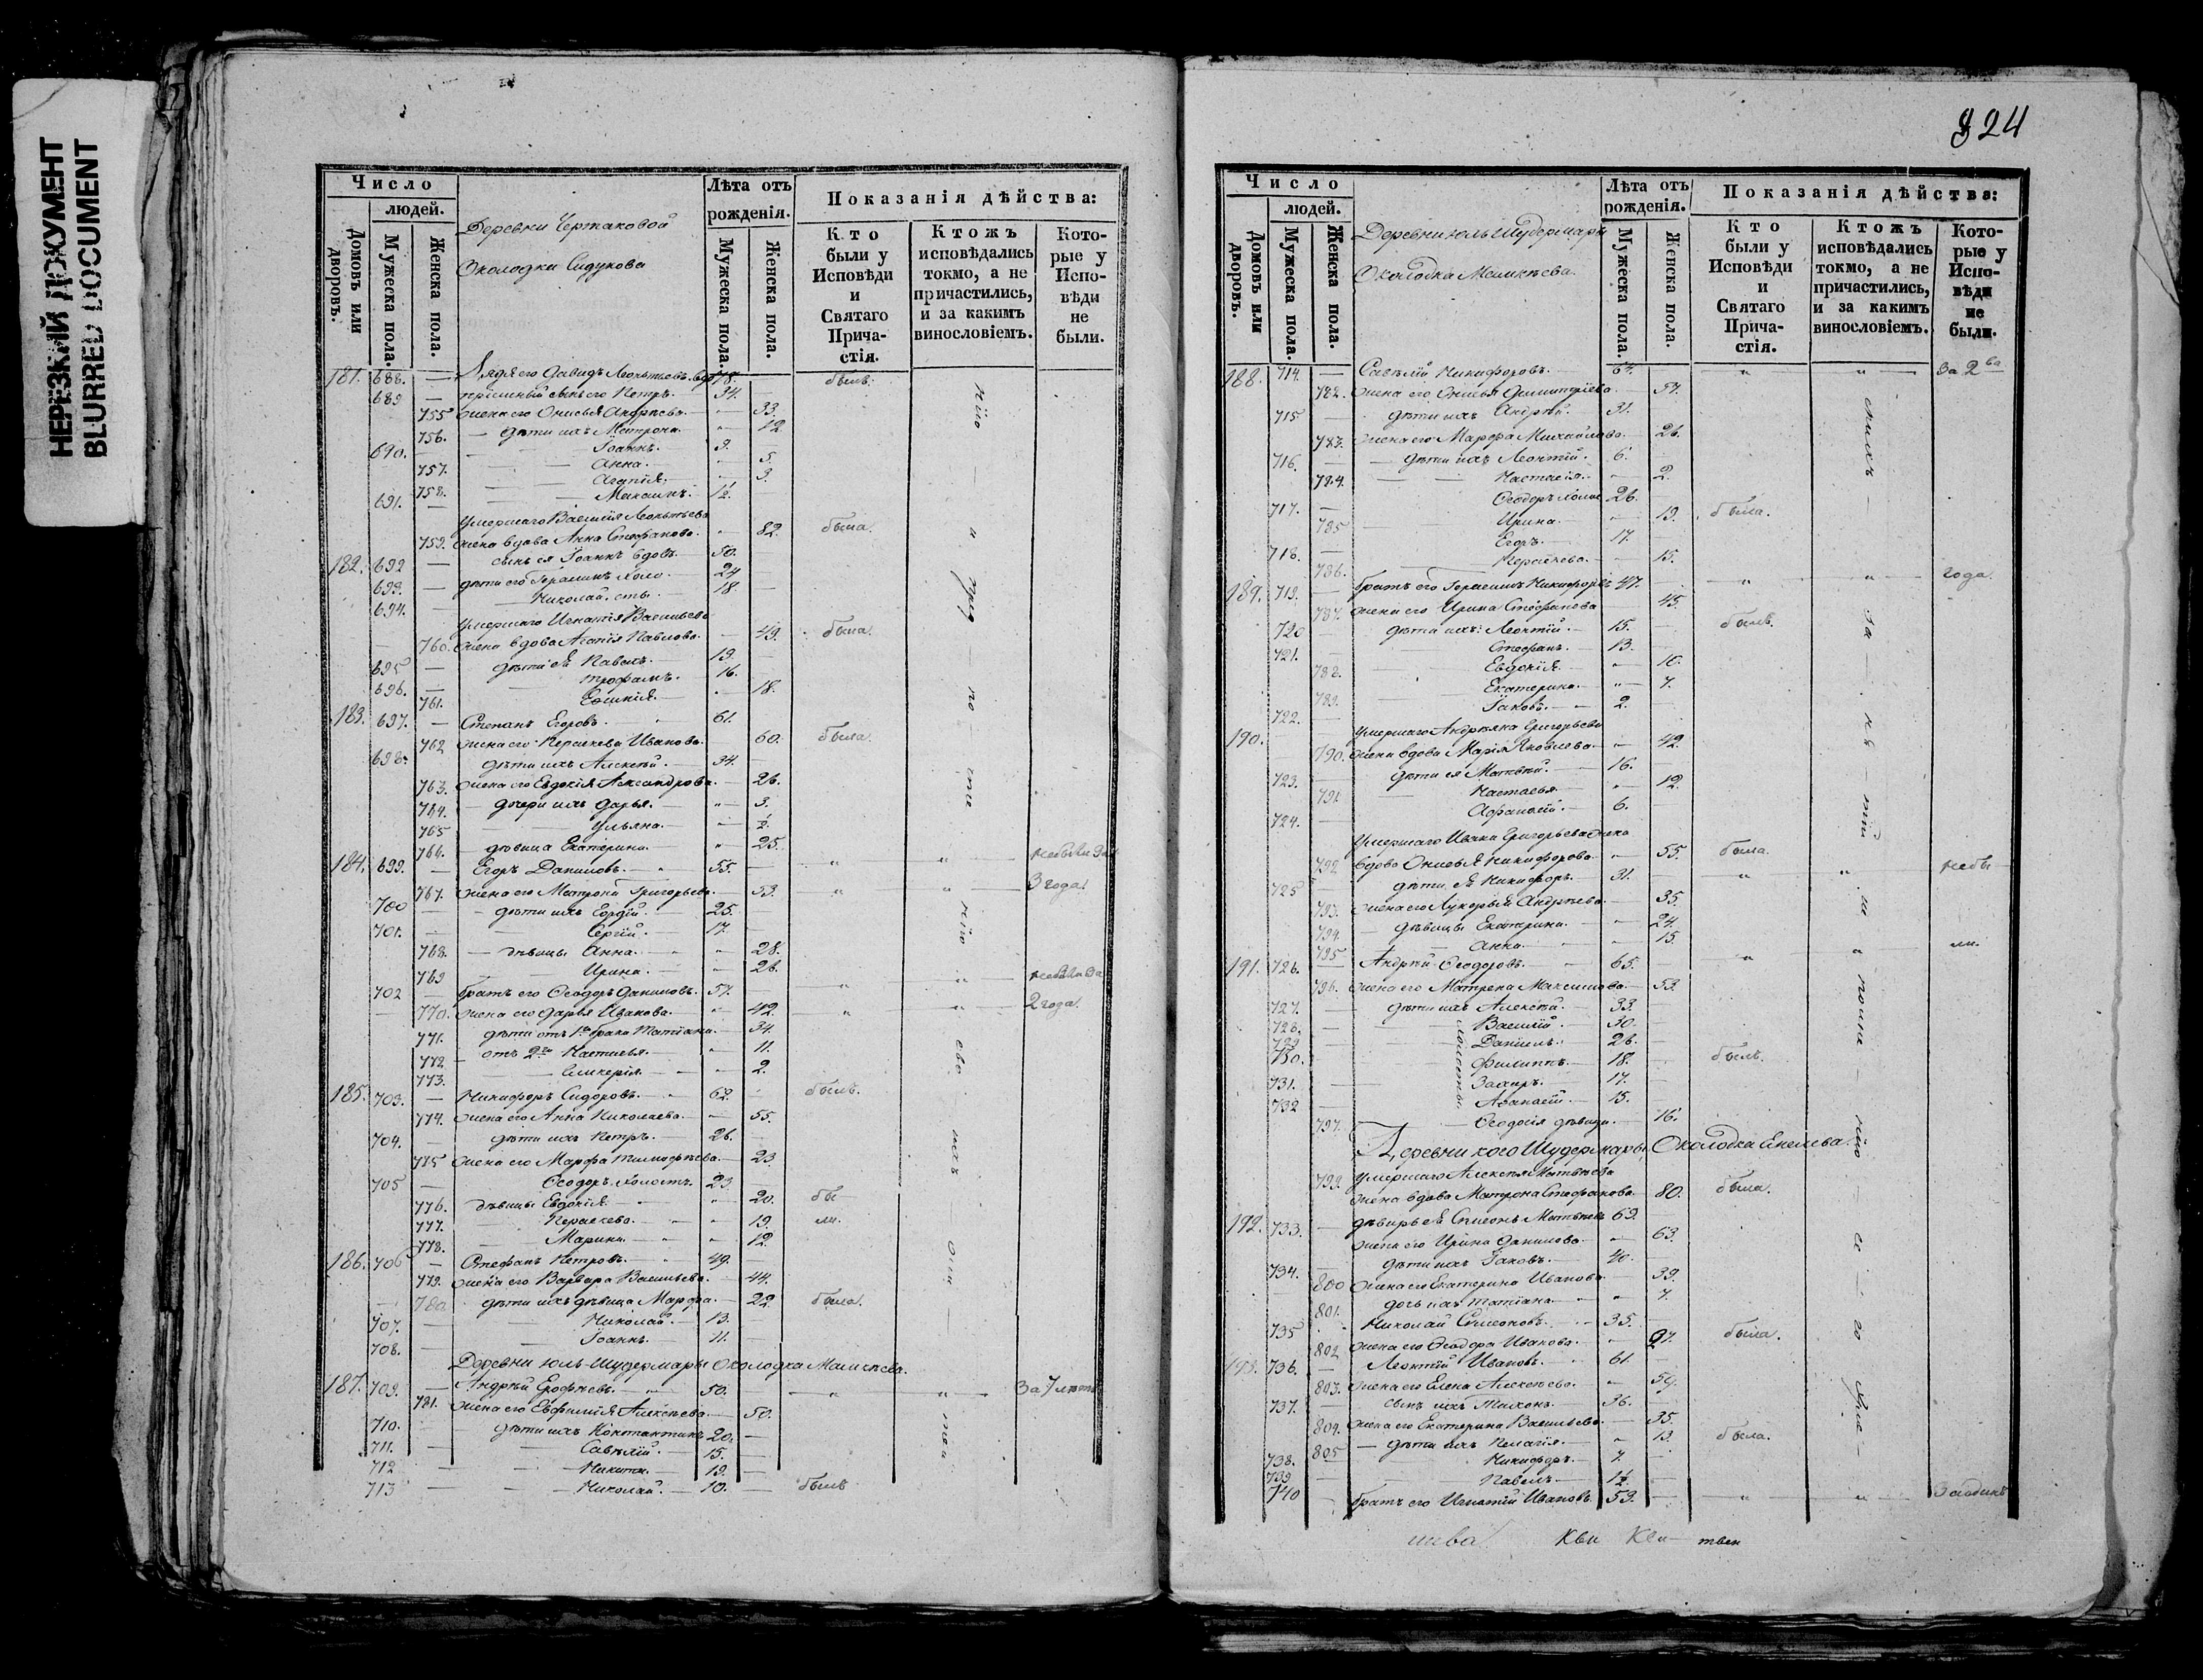 НЕРЕЗКИЙ ДОКУМЕНТ
BLURRED DOCUMENT
Число
людей.
Домовъ или дворовъ.
Мужеска пола.
Женска пола.
Деревни Чертаковой
Околодки Сидукова
Лѣта отъ рожденія.
Мужеска пола.
Женска пола.
Показанія дѣйства:
Кто были у Исповѣди и Святаго Прича-стія.
Ктожъ исповѣдались токмо, а не причастились, и за какимъ винословіемъ.
Кото-рые у Испо-вѣди не были.
181. 688. — Дядя его Давидъ Леонтьевъ вдо 78. былъ.
689 — сынъ его Петръ. 34.
755 жена его Онисья Андрѣева. — 33.
756. — дѣти ихъ Матрона. — 12.
690. — Іоаннъ. 9.
757. Анна. — 5
758. Агапія. — 3.
691. — Максимъ. — 1/2.
умершаго Василія Леонтьева
759. жена вдова Анна Стефанова. — 82. была.
182. 692 — сынъ ея Іоаннъ вдовъ. 50.
693. — дѣти его Герасимъ холо. 24
694. — Николай. 18.
умершаго Игнатія Васильева
760. жена вдова Агапія Павлова. — 49. была.
695 — дѣти ея Павелъ. 19.
696. — Трофимъ. 16.
761. 18.
183. 697. — Степанъ Егоровъ. 61.
762 жена его Параскева Иванова. 60. была.
698. дѣти ихъ Алексѣй. — 34.
763. жена его Евдокія Александрова. — 26.
764. — дочери ихъ Дарья. — 3.
765 Ульяна. — 1/2.
766. — дѣвица Екатерина. 25.
184. 699. — Егоръ Даниловъ. — 55. небыли за
767. жена его Матрона Григорьева. 53. 3 года.
700 — дѣти ихъ 25.
701. Сергій. — 17.
768. — дѣвицы Анна. — 28.
769 Ирина. — 26. небыли за
702 — братъ его Ѳеодоръ Даниловъ. 57. 2 года.
770. жена его Дарья Иванова. — 42.
771. дѣти отъ 1го брака Татіана. — 34.
772 — отъ 2го Настасья. — 11.
773. Гликерія. — 2.
185. 703. — Никифоръ Сидоровъ. — 62. былъ.
774. жена его Анна Николаева. — 55.
704. — дѣти ихъ Петръ. — 26.
775 жена его Марфа Тимофѣева. — 23
705 — Ѳеодоръ холостъ. 23
776. дѣвицы Евдокія. — 20. бы
777. Параскева. — 19. ли.
778. Марина. — 12.
186. 706 — Стефанъ Петровъ. — 49.
779. жена его Варвара Васильева. — 44.
780 дѣти ихъ дѣвица Марфа. — 22. была.
707. — Николай. — 13.
708. — Іоаннъ. 11.
Деревни юль Шудермары Околодка Мамлѣева.
187. 709. — Андрѣй Ерофѣевъ. — 50. За 7 лѣтъ
781. жена его Евфимія Алексѣева. — 50.
710. дѣти ихъ Константинъ 20. —
711. — Савелій. 15. —
712 — Никита. — 13. —
713 — Николай. — 10. — былъ
324
Число
людей.
Домовъ или дворовъ.
Мужеска пола.
Женска пола.
Деревни юль Шудермары
Околодка Мамлѣева.
Лѣта отъ рожденія.
Мужеска пола.
Женска пола.
Показанія дѣйства:
Кто были у Исповѣди и Святаго Прича-стія.
Ктожъ исповѣдались токмо, а не причастились, и за какимъ винословіемъ.
Кото-рые у Испо-вѣди не были.
188. 714. — Савелій Никифоровъ. — 64. За 2ва
782. жена его Онисья Димитріева 54.
715 дѣти ихъ Андрѣй. 31.
783. жена его Марфа Михайлова. — 26.
716. — дѣти ихъ Леонтій. 6.
784. Настасія. — 2.
717. — Ѳеодоръ 26.
785 Ирина. — 19. была.
718. — Егоръ. — 17.
786. Параскева. — 15.
189. 719. — братъ его Герасимъ Никифоровъ 47. года.
787. жена его Ирина Стефанова 45.
720 дѣти ихъ: Леонтій. — 15. былъ.
721. — Стефанъ. — 13.
788. Евдокія. — 10.
789. Екатерина. — 7.
722. — Іаковъ. — 2.
190. умершаго Андріяна Григорьева
790. жена вдова Марія Яковлева. — 42.
723. дѣти ея Матвѣй. — 16.
791 Настасья. — 12.
724. — Афанасій. — 6.
умершаго Ивана Григорьева жена
792. вдова Онисья Никифорова. — 55. была.
725 дѣти ея Никифоръ. 31. небы
793. жена его Лукерья Андрѣева. — 35.
794. — дѣвицы Екатерина. — 24.
795 Анна. — 15. ли.
191. 726. — Андрѣй Ѳеодоровъ. — 65.
796. жена его Матрена Максимова. — 53.
727. дѣти ихъ Алексѣй. — 33.
728. Василій. — 30.
729 Даніилъ. 26.
730. Филиппъ. — 18. былъ.
731. Захаръ. — 17.
732 — Афанасій. — 15.
797. Ѳеодосія дѣвица. — 16.
Деревни Шудермары, Околодка
799. умершаго Алексѣя Матвѣева
жена вдова Матрона Стефанова. 80. была.
192. 733. — деверь ея Симеонъ Матвѣевъ 69.
жена его Ирина Данилова. — 63.
734. — дѣти ихъ Іаковъ. — 40.
800 жена его Екатерина Иванова. — 39.
801. дочь ихъ Татіана. — 7.
735 Николай Симеоновъ. — 35.
802 жена его Ѳеодора Иванова. — 27. была.
193. 736. — Леонтій Ивановъ. 61.
803. жена его Елена Алексѣева. — 59.
737. — сынъ ихъ Тихонъ. 36.
804. жена его Екатерина Васильева. — 35.
805 — дѣти ихъ Пелагія. — 13. была.
738. Никифоръ. — 7.
739 Павелъ. — 1½.
740 — братъ его Игнатій Ивановъ. 53. За одинъ